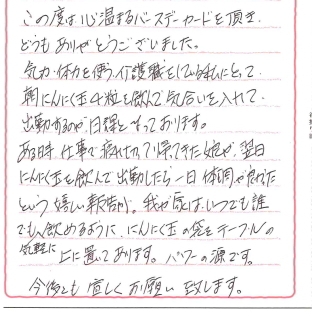 この度は心温まるバースデーカードを頂き、
どうもありがとうございました。
気力・体力を使う介護職をしている私にとって、
朝にんにく玉4粒を飲んで気合いを入れて、
出勤するのが日課となっております。
ある時仕事で疲れ切って帰ってきた娘が、翌日
にんにく玉を飲んで出勤したら一日体調が良かった
という嬉しい報告が。我が家はいつでも誰
でも気軽に飲めるように、にんにく玉の袋をテーブルの
上に置いております。パワーの源です。
今後とも宜しくお願い致します。